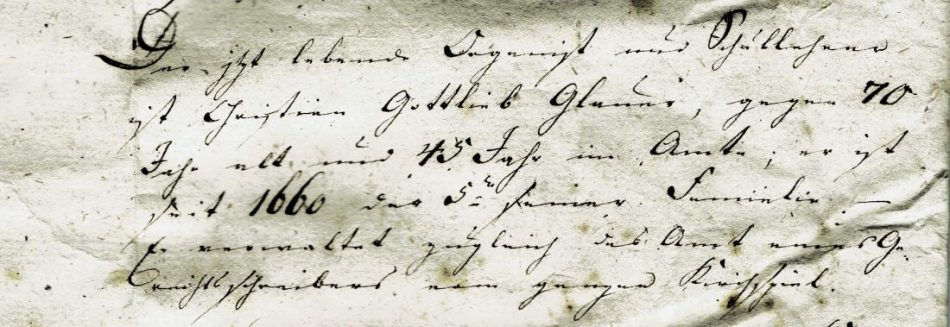 Der jzt lebende Organist und Schullehrer
ist Christian Gottlieb Glauer, gegen 70
Jahr alt und 45 Jahr im Amte; er ist
seit 1660 der 5te seiner Familie. —
Er verwaltet zugleich das Amt eines Ge-
richtsschreibers vom ganzen Kirchspiel.